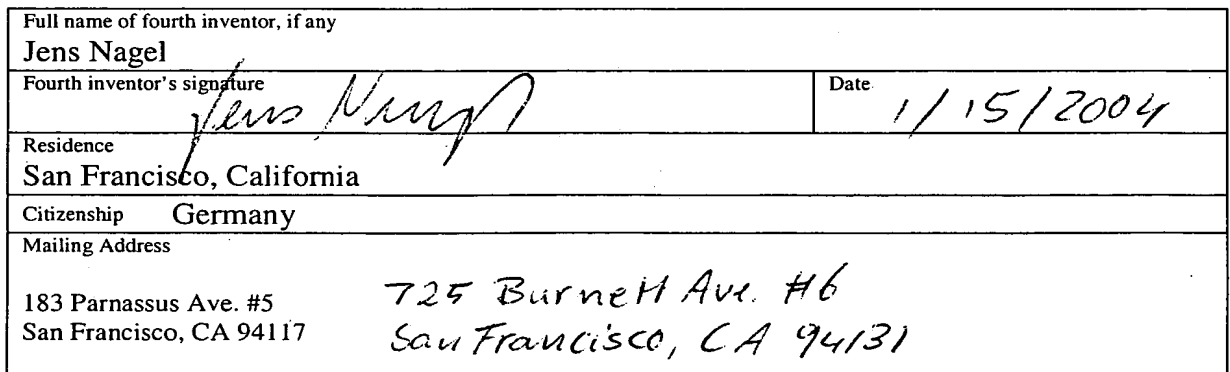 Full name of fourth inventor, if any
Jens Nagel
Fourth inventor's signature
Jens Nagel
Date
1/15/2004
Residence
San Francisco, California
Citizenship Germany
Mailing Address
183 Parnassus Ave. #5
San Francisco, CA 94117
725 Burnett Ave. #6
San Francisco, CA 94131